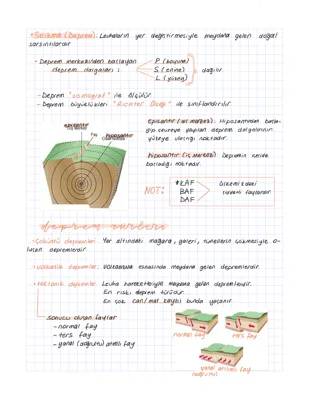 • Seizma (Deprem): Levhaların yer değiştirmesiyle meydana gelen doğal
sarsıntılardır
- Deprem merkezinden başlayan
deprem dalgaları:
P (boyuna)
S (enine)
L (yüzey)
dağılır.
- Deprem "sismograf" ile ölçülür.
- Deprem büyüklükleri "Richter Ölçeği" ile sınıflandırılır.
episantr
Fay
hiposantr
Episantr (dış merkez): Hiposantrdan başla-
yıp çevreye yayılan deprem dalgalarının
yüzeye ulaştığı noktadır.
hiposantr (iç merkez): Depremin nerde
başladığı noktadır.
NOT:
* KAF
BAF
DAF
Ülkemizdeki
önemli faylardır
deprem türleri
• Çöküntü depremler: Yer altındaki mağara, galeri, tünellerin çökmesiyle o-
luşan depremlerdir.
• Volkanik depremler: Volkanizma esnasında meydana gelen depremlerdir.
• Tektonik depremler: Levha hareketleriyle meydana gelen depremlerdir.
En riskli deprem türüdür.
En çok can/mal kaybı bunda yaşanır.
Sonucu oluşan faylar
- normal fay
- ters fay
- yanal (doğrultu) atımlı fay
normal fay
ters fay
yanal atımlı fay